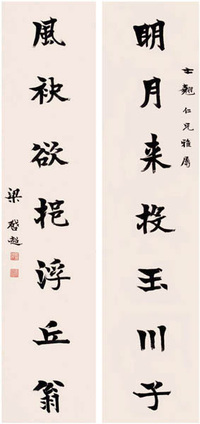 士魁仁兄雅屬
明月来投玉川子
風袂欲挹浮丘翁
梁啓超